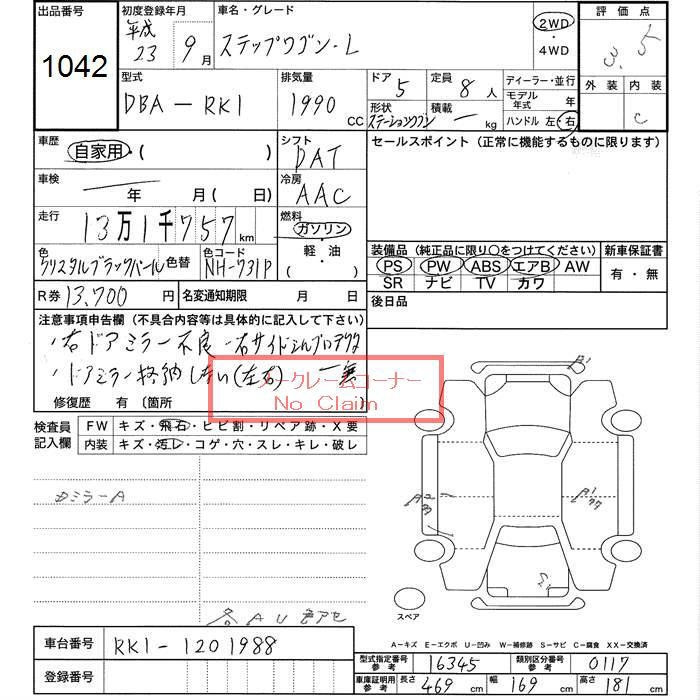 出品番号 初度登録年月 車名・グレード 評価点
1042 平成 23 9月 ステップワゴン-L 2WD・4WD 3.5
外装 内装
C
型式 排気量 ドア 定員 ディーラー・並行
DBA-RK1 1990 CC 5 8人 モデル年式 年
形状 積載 ハンドル 左・右
ステーションワゴン - kg
車歴 自家用・( ) シフト DAT セールスポイント (正常に機能するものに限ります)
車検 年 月(日) 冷房 AAC
走行 13万1千757km 燃料 ガソリン・軽・油・( )
色 クリスタルブラックパール 色替 色コード NH-731P
装備品 (純正品に限り○をつけてください) 新車保証書
PS PW ABS エアB AW 有・無
SR ナビ TV カワ
R券 13,700円 名変通知期限 月 日 後日品
注意事項申告欄 (不具合内容等は具体的に記入して下さい)
・右ドアミラー不良
・ドアミラー格納しない(左右) 一無
ノークレームコーナー
No Claim
修復歴 有 〔箇所 〕
検査員記入欄 FW キズ・飛石・ヒビ割・リペア跡・X要
内装 キズ・汚レ・コゲ・穴・スレ・キレ・破レ
ミラーA
A U 色アセ
スペア
A-キズ E-エクボ U-凹み W-補修跡 S-サビ C-腐食 XX-交換済
車台番号 RK1-1201988
登録番号
型式指定番号 参考 16345 類別区分番号 参考 0117
車庫証明用 参考 長さ 469cm 幅 169cm 高さ 181cm